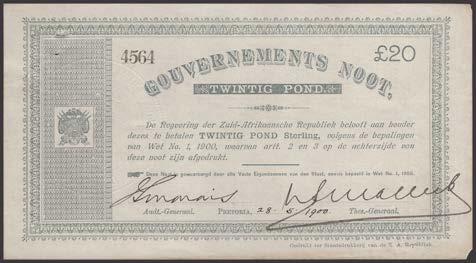 4564
£20
GOUVERNEMENTS NOOT,
TWINTIG POND.
De Regeering der Zuid-Afrikaansche Republiek belooft aan houder
dezes te betalen TWINTIG POND Sterling, volgens de bepalingen
van Wet No. 1, 1900, waarvan artt. 2 en 3 op de achterzijde van
deze noot zijn afgedrukt.
Deze Noot is gewaarborgd door alle Vaste Eigendommen van den Staat, zooals bepaald in Wet No. 1, 1900.
Audt.-Generaal.
PRETORIA, 28-5/1900.
Thes.-Generaal.
Gedrukt ter Staatsdrukkerij van de Z. A. Republiek.